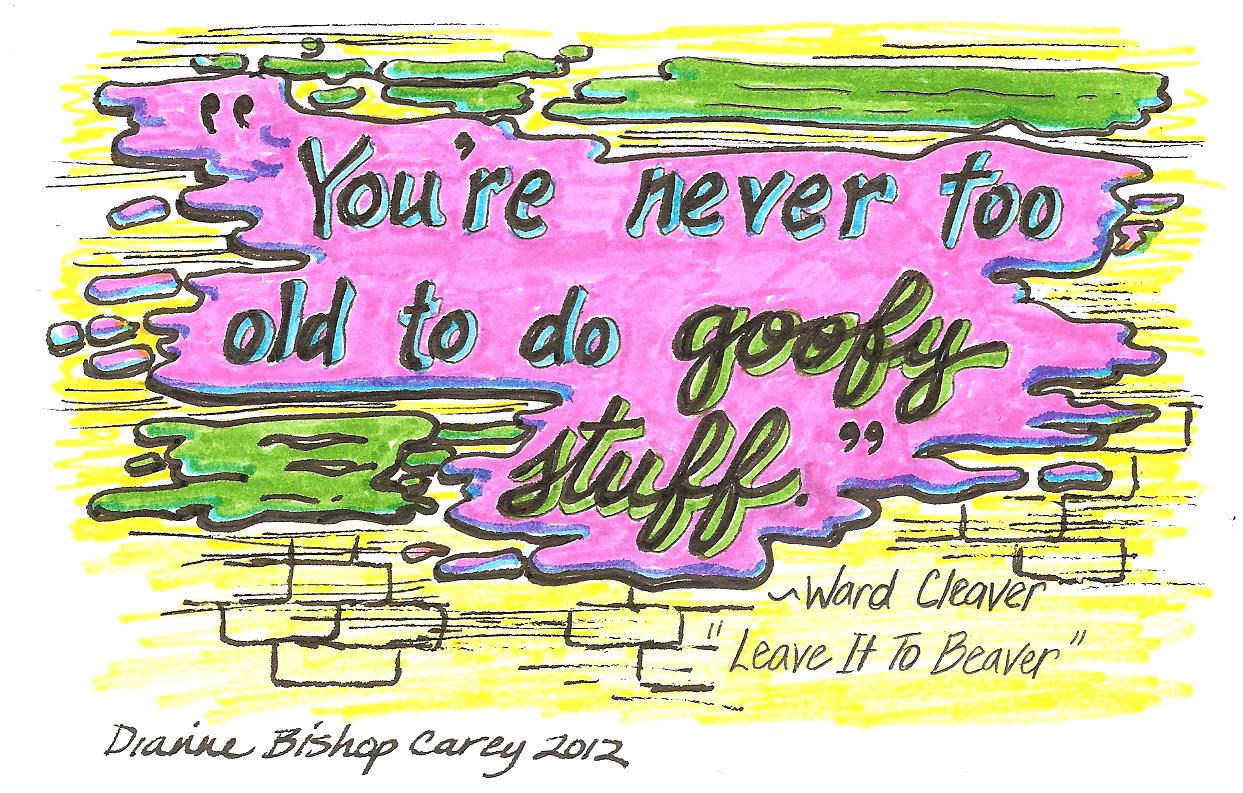 "You're never too
old to do goofy
stuff."
~Ward Cleaver
"Leave It To Beaver"
Dianne Bishop Carey 2012